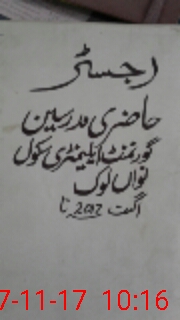 رجسٹر
حاضری مدرسین
گورنمنٹ ایلیمنٹری سکول
نواں لوک
اگست 2012 تا
7-11-17 10:16